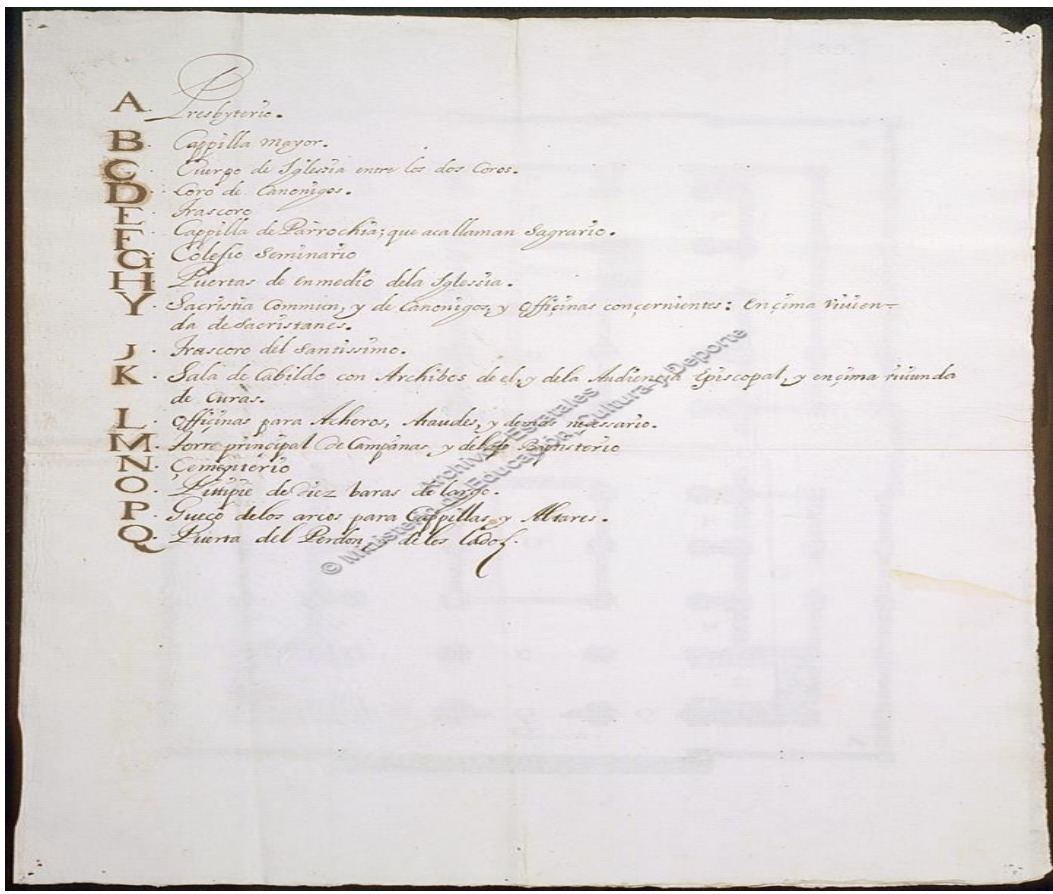 A. Presbyterio.
B. Cappilla mayor.
C. Cuerpo de Iglesia entre los dos Coros.
D. Coro de Canonigos.
E. Trascoro
F. Cappilla de Parrochia; que aca llaman Sagrario.
G. Colesio Seminario
H. Puertas de enmedio dela Iglesia.
Y. Sacristia Commun, y de Canonigos, y officinas conçernientes: Ençima viuien-
da de Sacristanes.
J. Trascoro del Santissimo.
K. Sala de Cabildo con Archibos de el, y dela Audiençia Episcopal, y ençima viuienda
de Curas.
L. officinas para Acheros, Ataudes, y demas nesessario.
M. Torre prinçipal de Campanas, y debajo Baptisterio
N. Çementorio
O. Pittipie de diez baras de largo.
P. Gueco delos arcos para Cappillas, y Altares.
Q. Puerta del Perdon, de los lados.
© Ministerio de Educación, Cultura y Deporte
Archivos Estatales